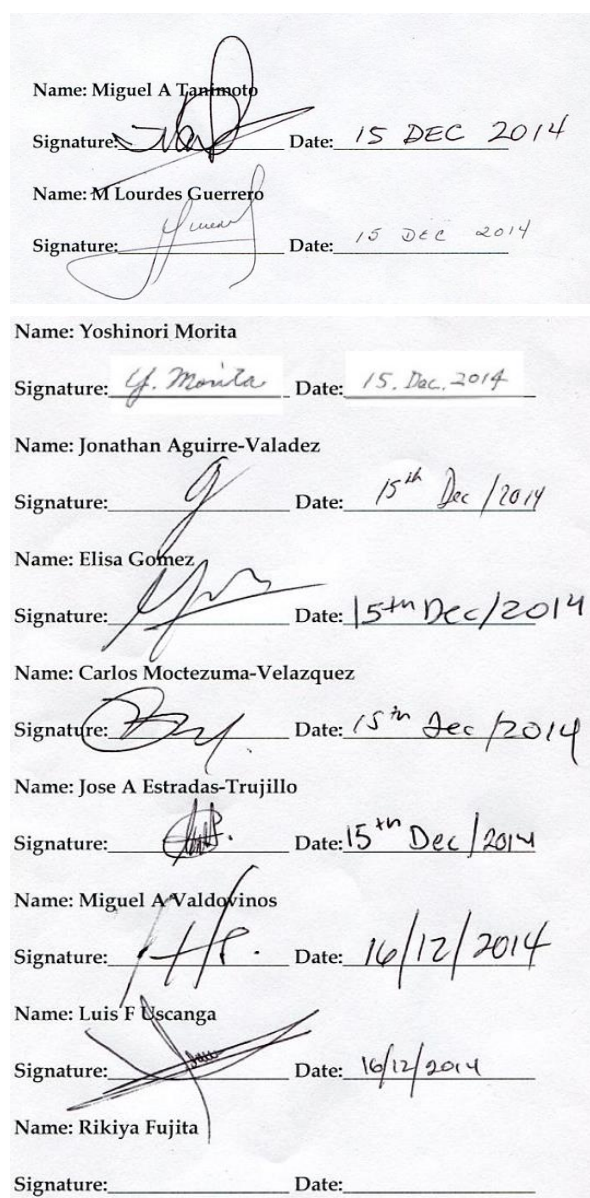 Name: Miguel A Tanimoto
Signature: Date: 15 DEC 2014
Name: M Lourdes Guerrero
Signature: Date: 15 DEC 2014
Name: Yoshinori Morita
Signature: Y. Morita Date: 15. Dec. 2014
Name: Jonathan Aguirre-Valadez
Signature: Date: 15th Dec/2014
Name: Elisa Gomez
Signature: Date: 15th Dec/2014
Name: Carlos Moctezuma-Velazquez
Signature: Date: 15th Dec/2014
Name: Jose A Estradas-Trujillo
Signature: Date: 15th Dec/2014
Name: Miguel A Valdovinos
Signature: Date: 16/12/2014
Name: Luis F Uscanga
Signature: Date: 16/12/2014
Name: Rikiya Fujita
Signature: Date: